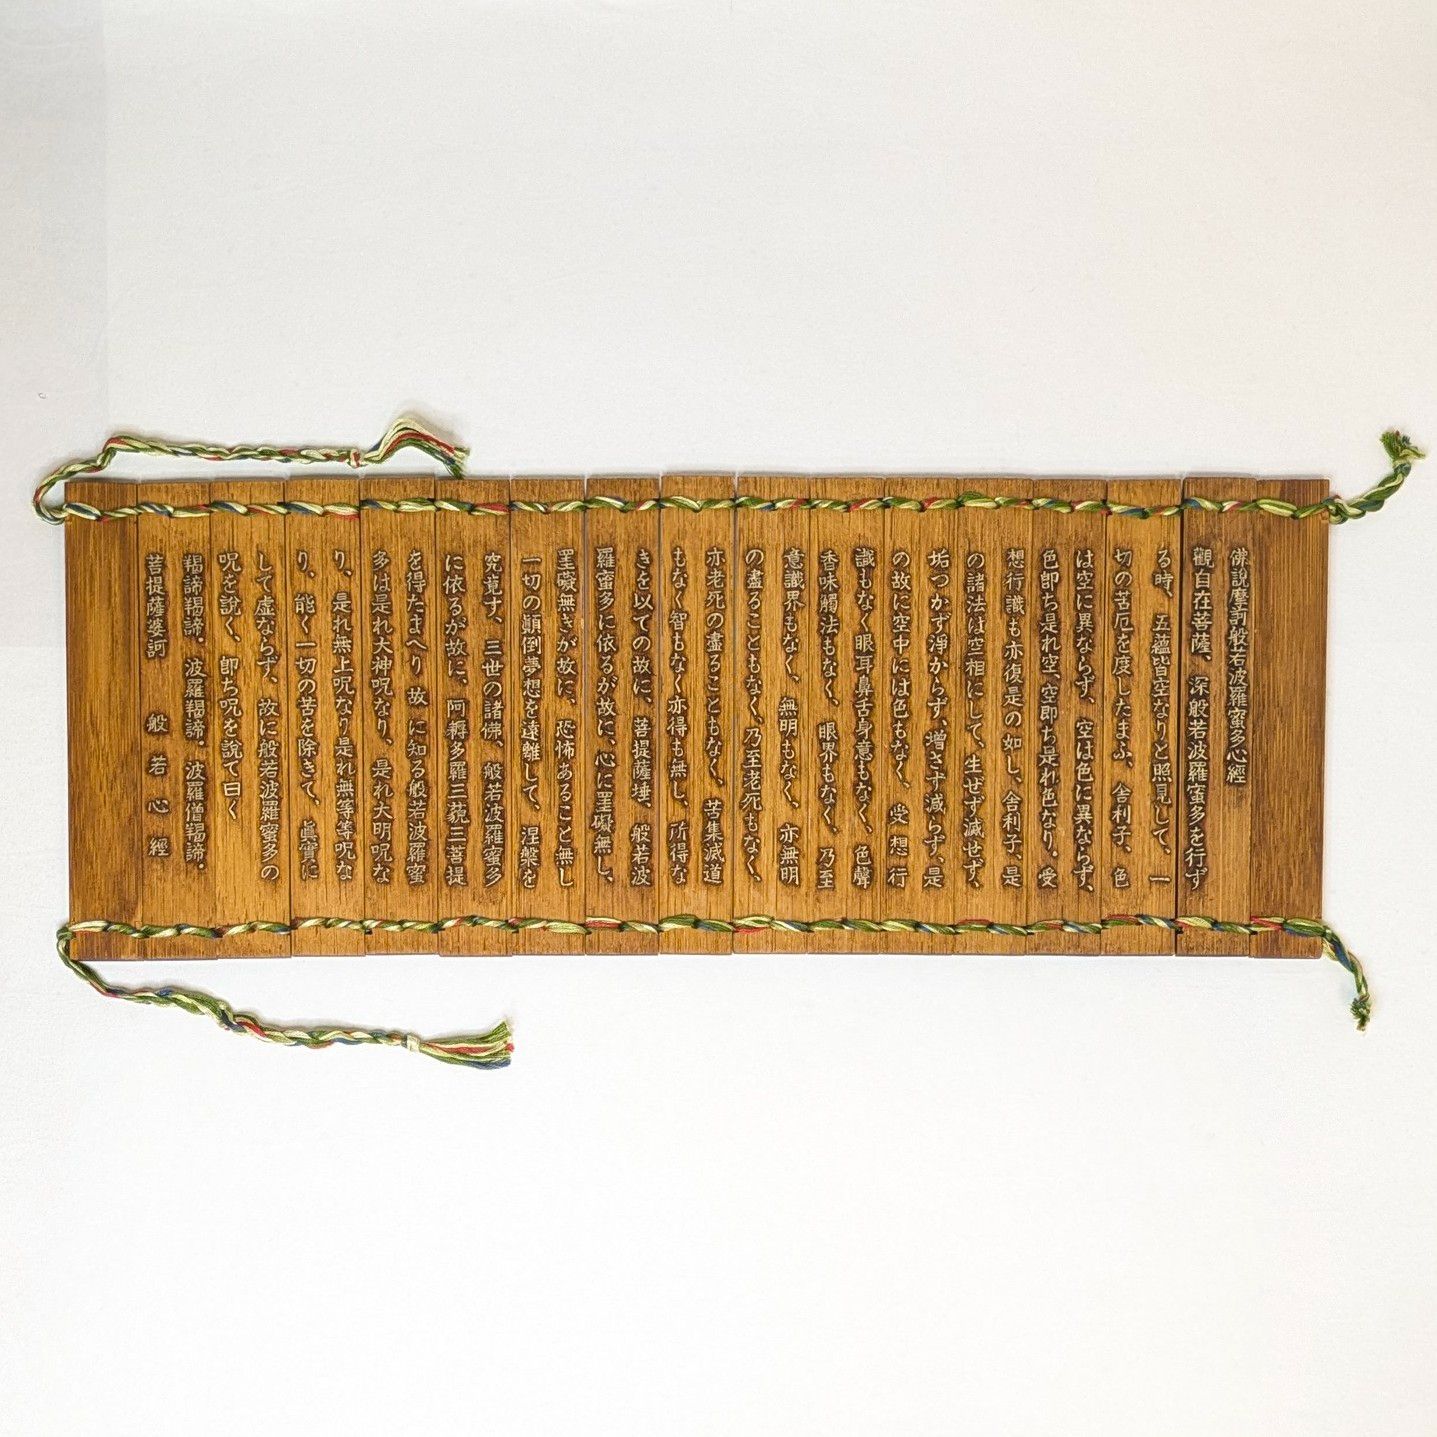 佛說摩訶般若波羅蜜多心經
觀自在菩薩、深般若波羅蜜多を行ず
る時、五蘊皆空なりと照見して、一
切の苦厄を度したまふ、舍利子、色
は空に異ならず、空は色に異ならず、
色即ち是れ空、空即ち是れ色なり.受
想行識も亦復是の如し、舍利子、是
の諸法は空相にして、生ぜず滅せず、
垢つかず淨からず、增さず減らず、是
の故に空中には色もなく、受想行
識もなく眼耳鼻舌身意もなく、色聲
香味觸法もなく、眼界もなく、乃至
意識界もなく、無明もなく、亦無明
の盡ることもなく、乃至老死もなく、
亦老死の盡ることもなく、苦集滅道
もなく智もなく亦得も無し、所得な
きを以ての故に、菩提薩埵、般若波
羅蜜多に依るが故に、心に罣礙無し、
罣礙無きが故に、恐怖あること無し
一切の顚倒夢想を遠離して、涅槃を
究竟す、三世の諸佛、般若波羅蜜多
に依るが故に、阿耨多羅三藐三菩提
を得たまへり 故に知る般若波羅蜜
多は是れ大神呪なり、是れ大明呪な
り、是れ無上呪なり是れ無等等呪な
り、能く一切の苦を除きて、眞實に
して虛ならず、故に般若波羅蜜多の
呪を說く、卽ち呪を說て曰く
羯諦羯諦.波羅羯諦.波羅僧羯諦.
菩提薩婆訶 般若心經